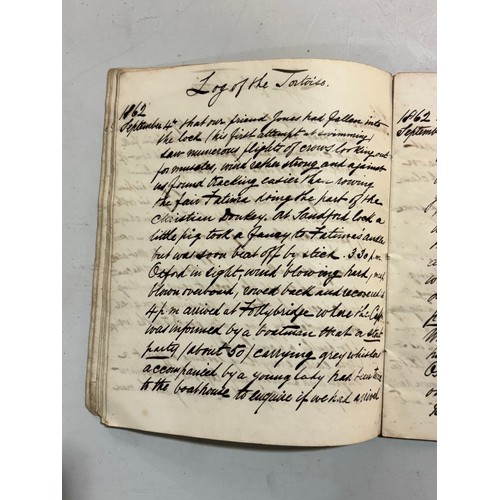 Log of the Tortoise.
1862
September 4th that our friend Jonas had fallen into
the lock (his first attempt at swimming)
saw numerous flights of crows looking out
for muscles, wind rather strong and against
us found tracking easier than rowing
the fair Fatima doing the part of the
Christian Donkey. At Sandford lock a
little pig took a fancy to Fatima's
but was soon beat off by stick. 3.30 p.m
Oxford in sight wind blowing hard,
blown overboard, rowed back and recovered it
4 p m arrived at Follybridge where the
was informed by a boatman that a stout
party (about 50) carrying grey whiskers
accompanied by a young lady had been
to the boathouse to enquire if we had arrived
1862
Septemb